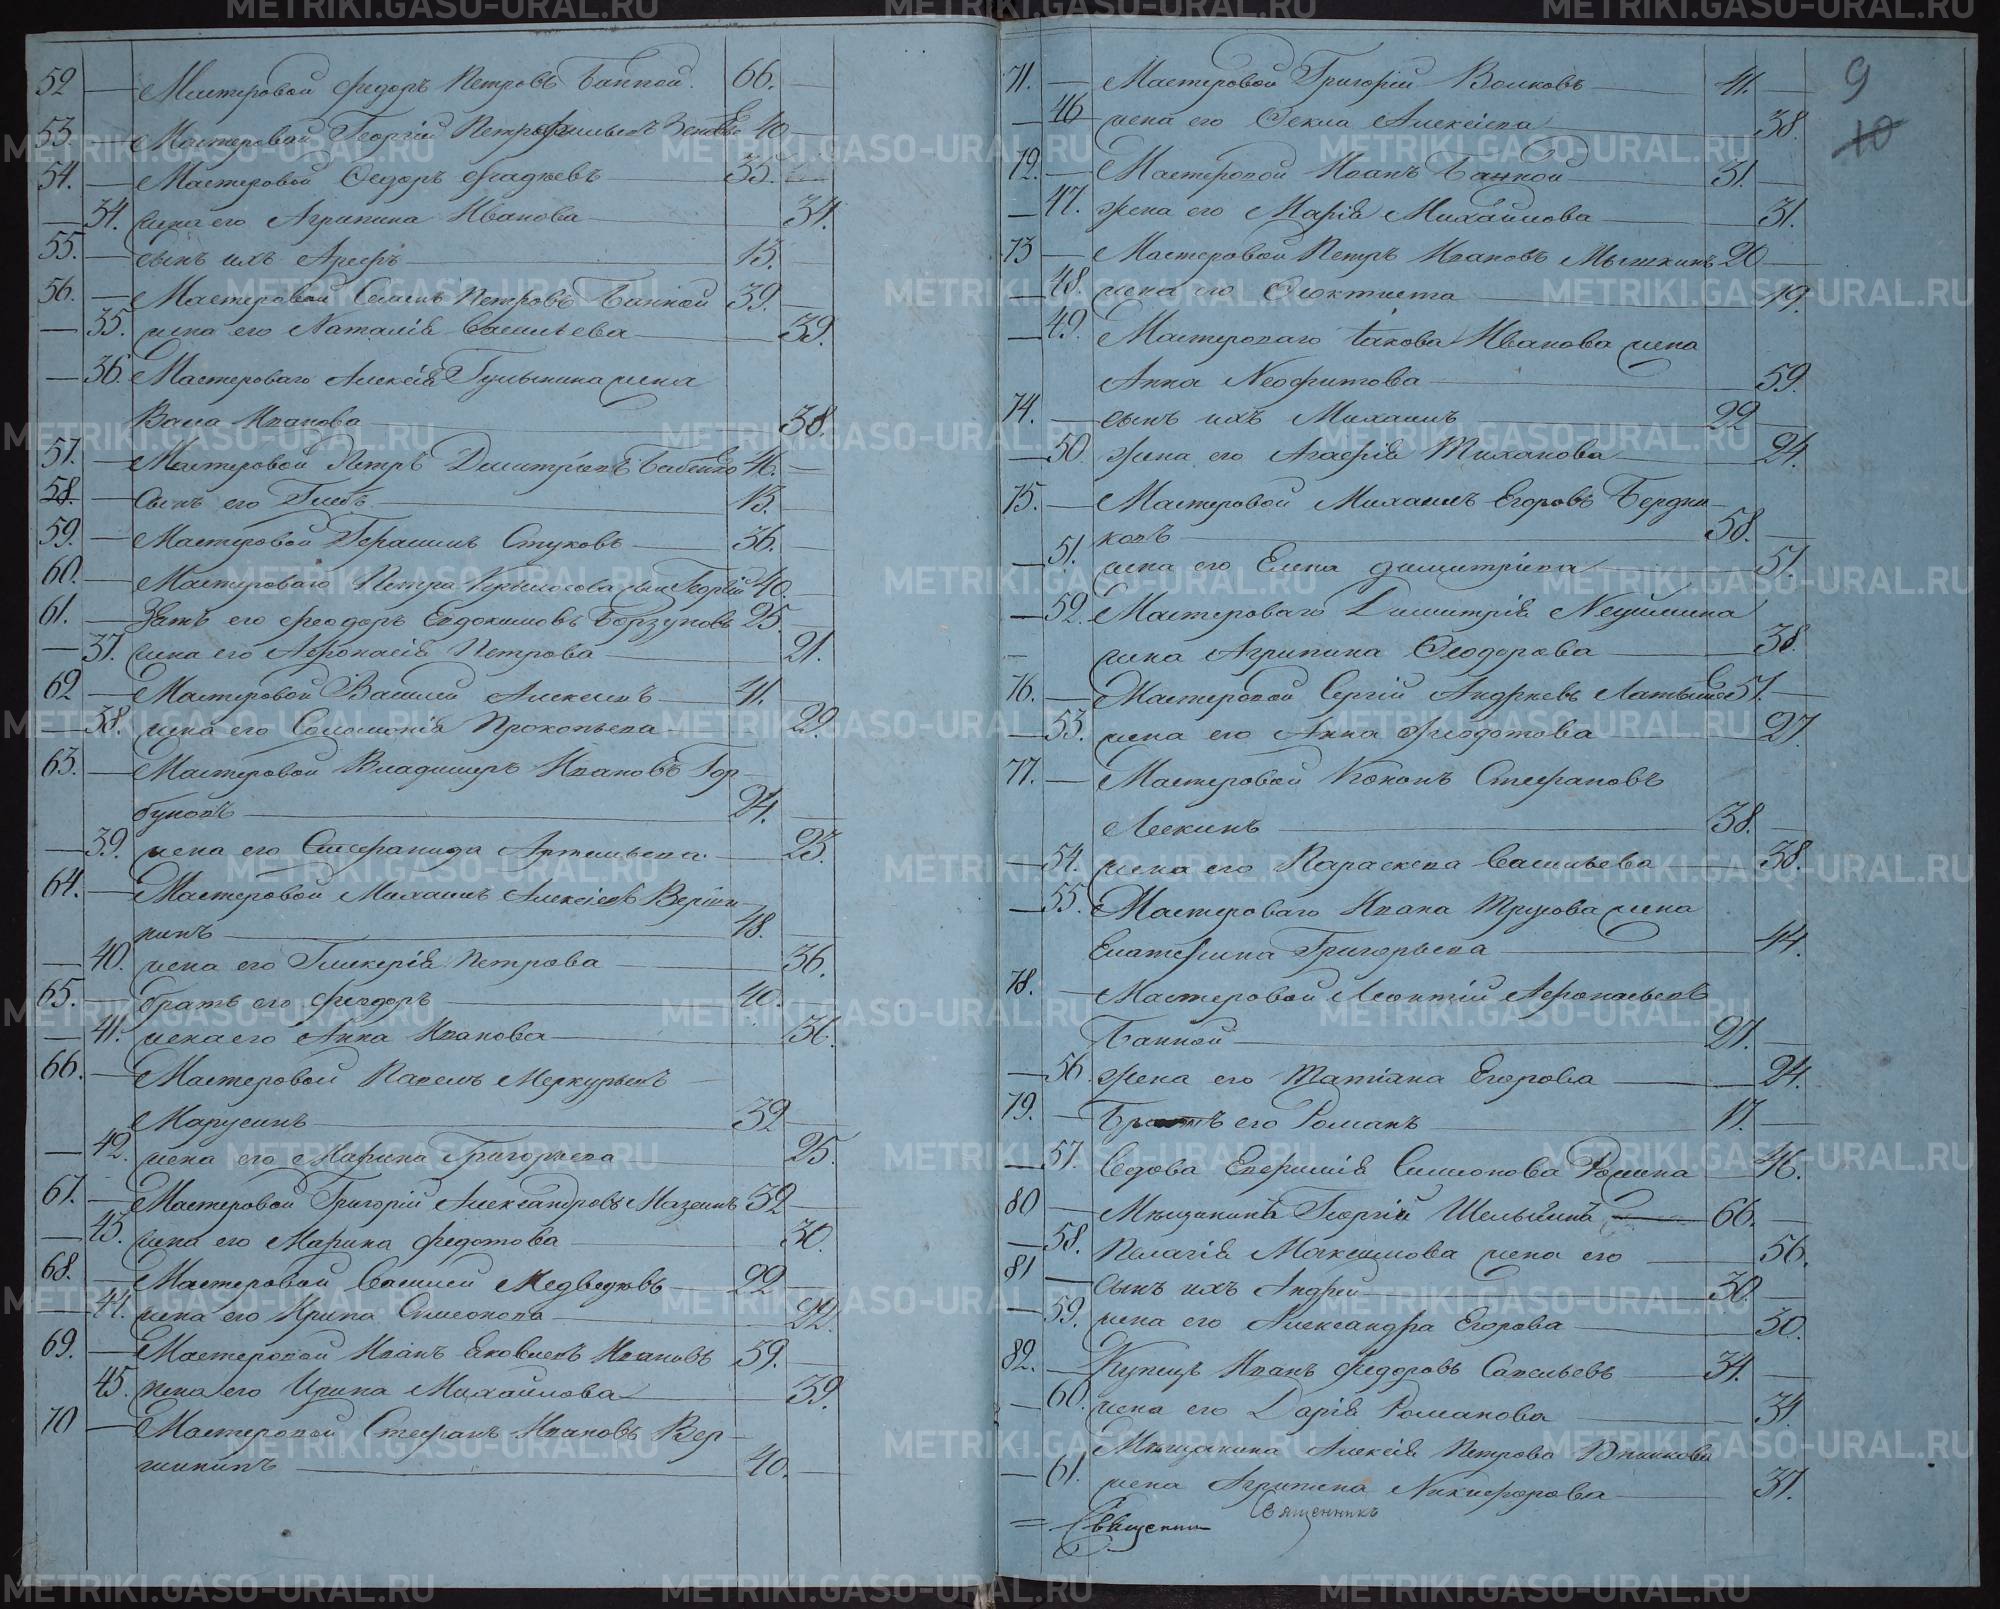 52 — Мастеровой Федоръ Петровъ Банной. 66. —
53. — Мастеровой Георгій 40 —
54. — Мастеровой Ѳедоръ Фадѣевъ 35. —
— 34. жена его Агрипина Иванова 34.
55. — сынъ ихъ Ареѳъ 13. —
56. — Мастеровой Семенъ Петровъ Банной 39. —
— 35. жена его Наталія Васильева 39.
— 36. Мастероваго Алексія Гулькина жена
Васса Иванова 38.
57. — Мастеровой Петръ Димитріевъ 46. —
58. — Сынъ его Глебъ 13. —
59. — Мастеровой Герасимъ Стуковъ 36. —
60. — Мастероваго Петра сынъ Георгій 40. —
61. — Зять его Феодоръ Евдокимовъ Борзуновъ 25. —
— 37. жена его Афонасія Петрова 21.
62 — Мастеровой Василій Алексѣевъ 41. —
— 38. жена его Соломонія Прокопьева 29.
63. — Мастеровой Владимеръ Ивановъ Гор-
буновъ 24. —
— 39. жена его Стефанида Артемьева. 23.
64. — Мастеровой Михаилъ Алексіевъ
нинъ 48. —
— 40. жена его Гликерія Петрова 36.
65. — братъ его Феодоръ 40. —
— 41. жена его Анна Иванова 36.
66. — Мастеровой Павелъ Меркурьевъ
Марусинъ 32 —
— 42. жена его Марина Григорьева 25.
67. — Мастеровой Григорій Александровъ Мазеинъ 32 —
— 43. жена его Марина Федотова 30.
68. — Мастеровой Василей Медведевъ 22 —
— 44. жена его Ирина Симеонова 22.
69. — Мастеровой Иванъ Яковлевъ Ивановъ 59. —
45. жена его Ирина Михайлова 39.
70 — Мастеровой Стефанъ Ивановъ Вер-
шининъ 40. —
9
10
71. — Мастеровой Григорій Волковъ 41. —
— 46 жена его Ѳекла Алексіева 38.
72. — Мастеровой Иванъ Банной 31. —
— 47. Жена его Марія Михайлова 31.
73 — Мастеровой Петръ Ивановъ Мышкинъ 20 —
— 48. жена его Ѳеоктиста 19.
— 49. Мастероваго Іакова Иванова жена
Анна Неофитова 59.
74. — сынъ ихъ Михаилъ 22 —
— 50. жена его Агафія Тиханова 24.
75. — Мастеровой Михаилъ Егоровъ Бердни-
ковъ 58. —
— 51. жена его Елена Димитріева 51.
— 52. Мастероваго Димитрія Неуймина
жена Агрипина Ѳеодорова 38.
76. — Мастеровой Сергій Андреевъ 51. —
— 53. жена его Анна Феодотова 27.
77. — Мастеровой Кононъ Стефановъ
Лескинъ 38. —
— 54. жена его Параскева Васильева 38.
— 55. Мастероваго Ивана Трусова жена
Екатерина Григорьева 44.
78. — Мастеровой Леонтій Афонасьевъ
Банной 27. —
— 56. Жена его Татіана Егорова 24.
79. — Братъ его Романъ 17. —
— 57. Вдова Евфимія Симеонова Ромина 46.
80 — Мѣщанинъ Георгій 66. —
— 58. Пелагія Максимова жена его 56.
81 — сынъ ихъ Андрей 30. —
— 59. жена его Александра Егорова 30.
82. — Купецъ Иванъ Федоровъ Савельевъ 34. —
— 60. жена его Дарія Романова 34.
Мѣщанина Алексія Петрова
— 61. жена Агрипина Никифорова 31.
Священникъ
Священни